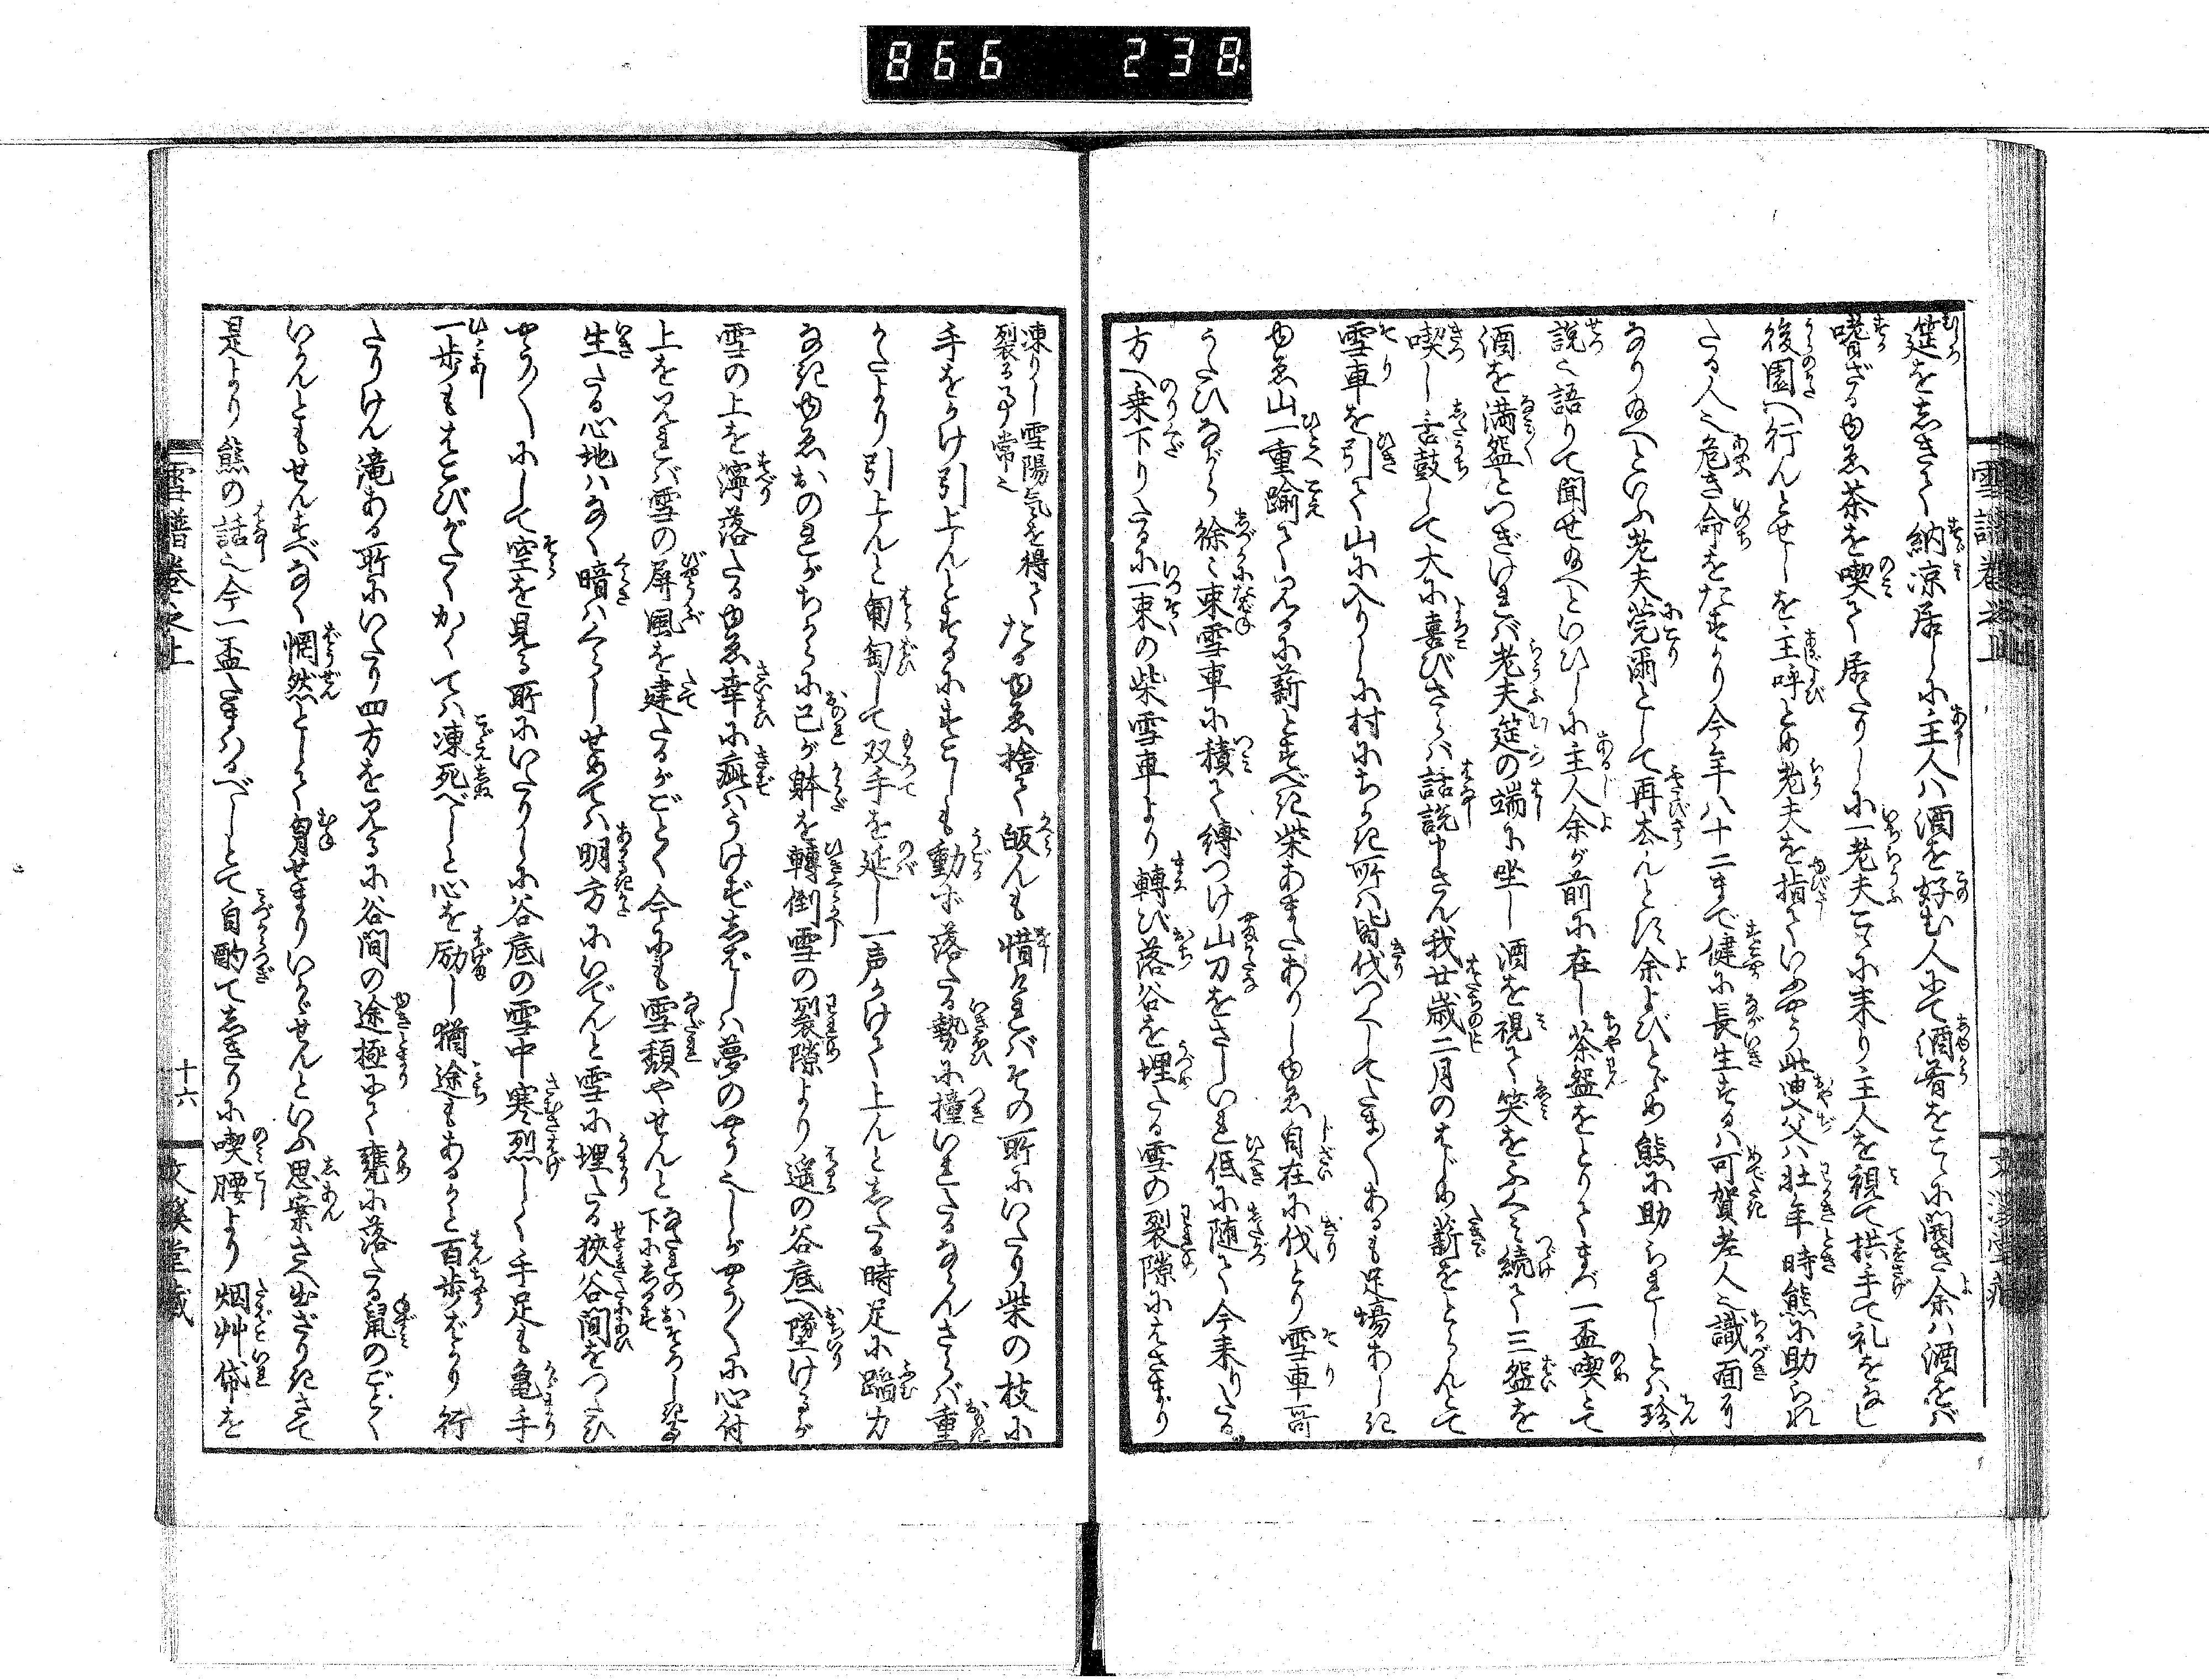 866 238
雪譜巻之上
文溪堂藏
筵をしきて納涼居しに主人ハ酒を好む人にて酒肴をこゝに開き余ハ酒をバ
嗜ざるゆゑ茶を喫て居たりしに一老夫こゝに来り主人を視て拱手て礼をなし
後園へ行んとせしを主呼とめ老夫を指ていふやう此叟父ハ壮年時熊に助られ
たる人也危き命をたすかり今年八十二まで健に長生するハ可賀老人也識面に
なり玉へといふ老夫莞爾として再去んとす余よびとゞめ熊に助られしとハ珍
説也語りて聞せ玉へといひしに主人余が前に在し茶盌をとりてまづ一盃喫とて
酒を満盌とつぎけれバ老夫筵の端に坐し酒を視て笑をふくみ続て三盌を
喫し舌鼓して大に喜びさらバ話説申さん我廿歳二月のはじめ薪をとらんとて
雪車を引て山に入りしに村にちかき所ハ皆伐つくしてたま〳〵あるも足場あしき
ゆゑ山一重踰て見るに薪とすべき柴あまたありしゆゑ自在に伐とり雪車哥
うたひながら徐々束雪車に積て縛つけ山刀をさしいれ低に随て今来りたる
方へ乗下りたるに一束の柴雪車より轉び落谷を埋たる雪の裂隙にはさまり
凍りし雪陽気を得て
裂る事常也
たるゆゑ捨て皈んも惜ければその所にいたり柴の枝に
手をかけ引上んとするにすこしも動ず落たる勢に撞いれたるならんさらバ重
かたより引上んと匍匐して双手を延し一声かけて上んとしたる時足に蹈力
なきゆゑおのれがちからに己が躰を轉倒雪の裂隙より遥の谷底へ墜けるが
雪の上を濘落たるゆゑ幸に疵ハうけずしばしハ夢のやう也しがやう〳〵に心付
上を見れバ雪の屏風を建たるがごとく今にも雪頽やせんと
なだれのおそろしき事
下にしるす
生たる心地ハなく暗ハくらしせめてハ明方にいでんと雪に埋たる狭谷間をつたひ
やう〳〵にして空を見る所にいたりしに谷底の雪中寒烈しく手足も亀手
一歩もはこびがたくかくてハ凍死べしと心を励し猶途もあるかと百歩ばかり行
たりけん滝ある所にいたり四方を見るに谷間の途極にて甕に落たる鼠のごとく
いかんともせんすべなく惘然として胸せまりいかゞせんといふ思案さへ出ざりきさて
是より熊の話也今一盃たまはるべしとて自酌てしきりに喫腰より烟艸袋を
雪譜巻之上
十六
文溪堂藏